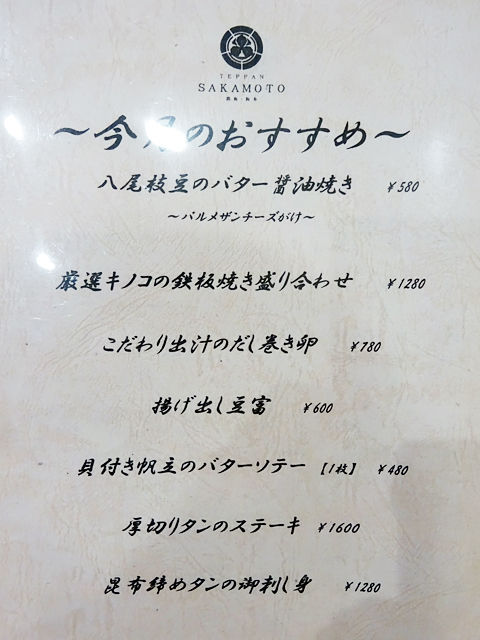 TEPPAN
SAKAMOTO
～今月のおすすめ～
八尾枝豆のバター醤油焼き ¥580
～パルメザンチーズがけ～
厳選キノコの鉄板焼き盛り合わせ ¥1280
こだわり出汁のだし巻き卵 ¥780
揚げ出し豆富 ¥600
貝付き帆立のバターソテー 【1枚】 ¥480
厚切りタンのステーキ ¥1600
昆布締めタンの御刺し身 ¥1280